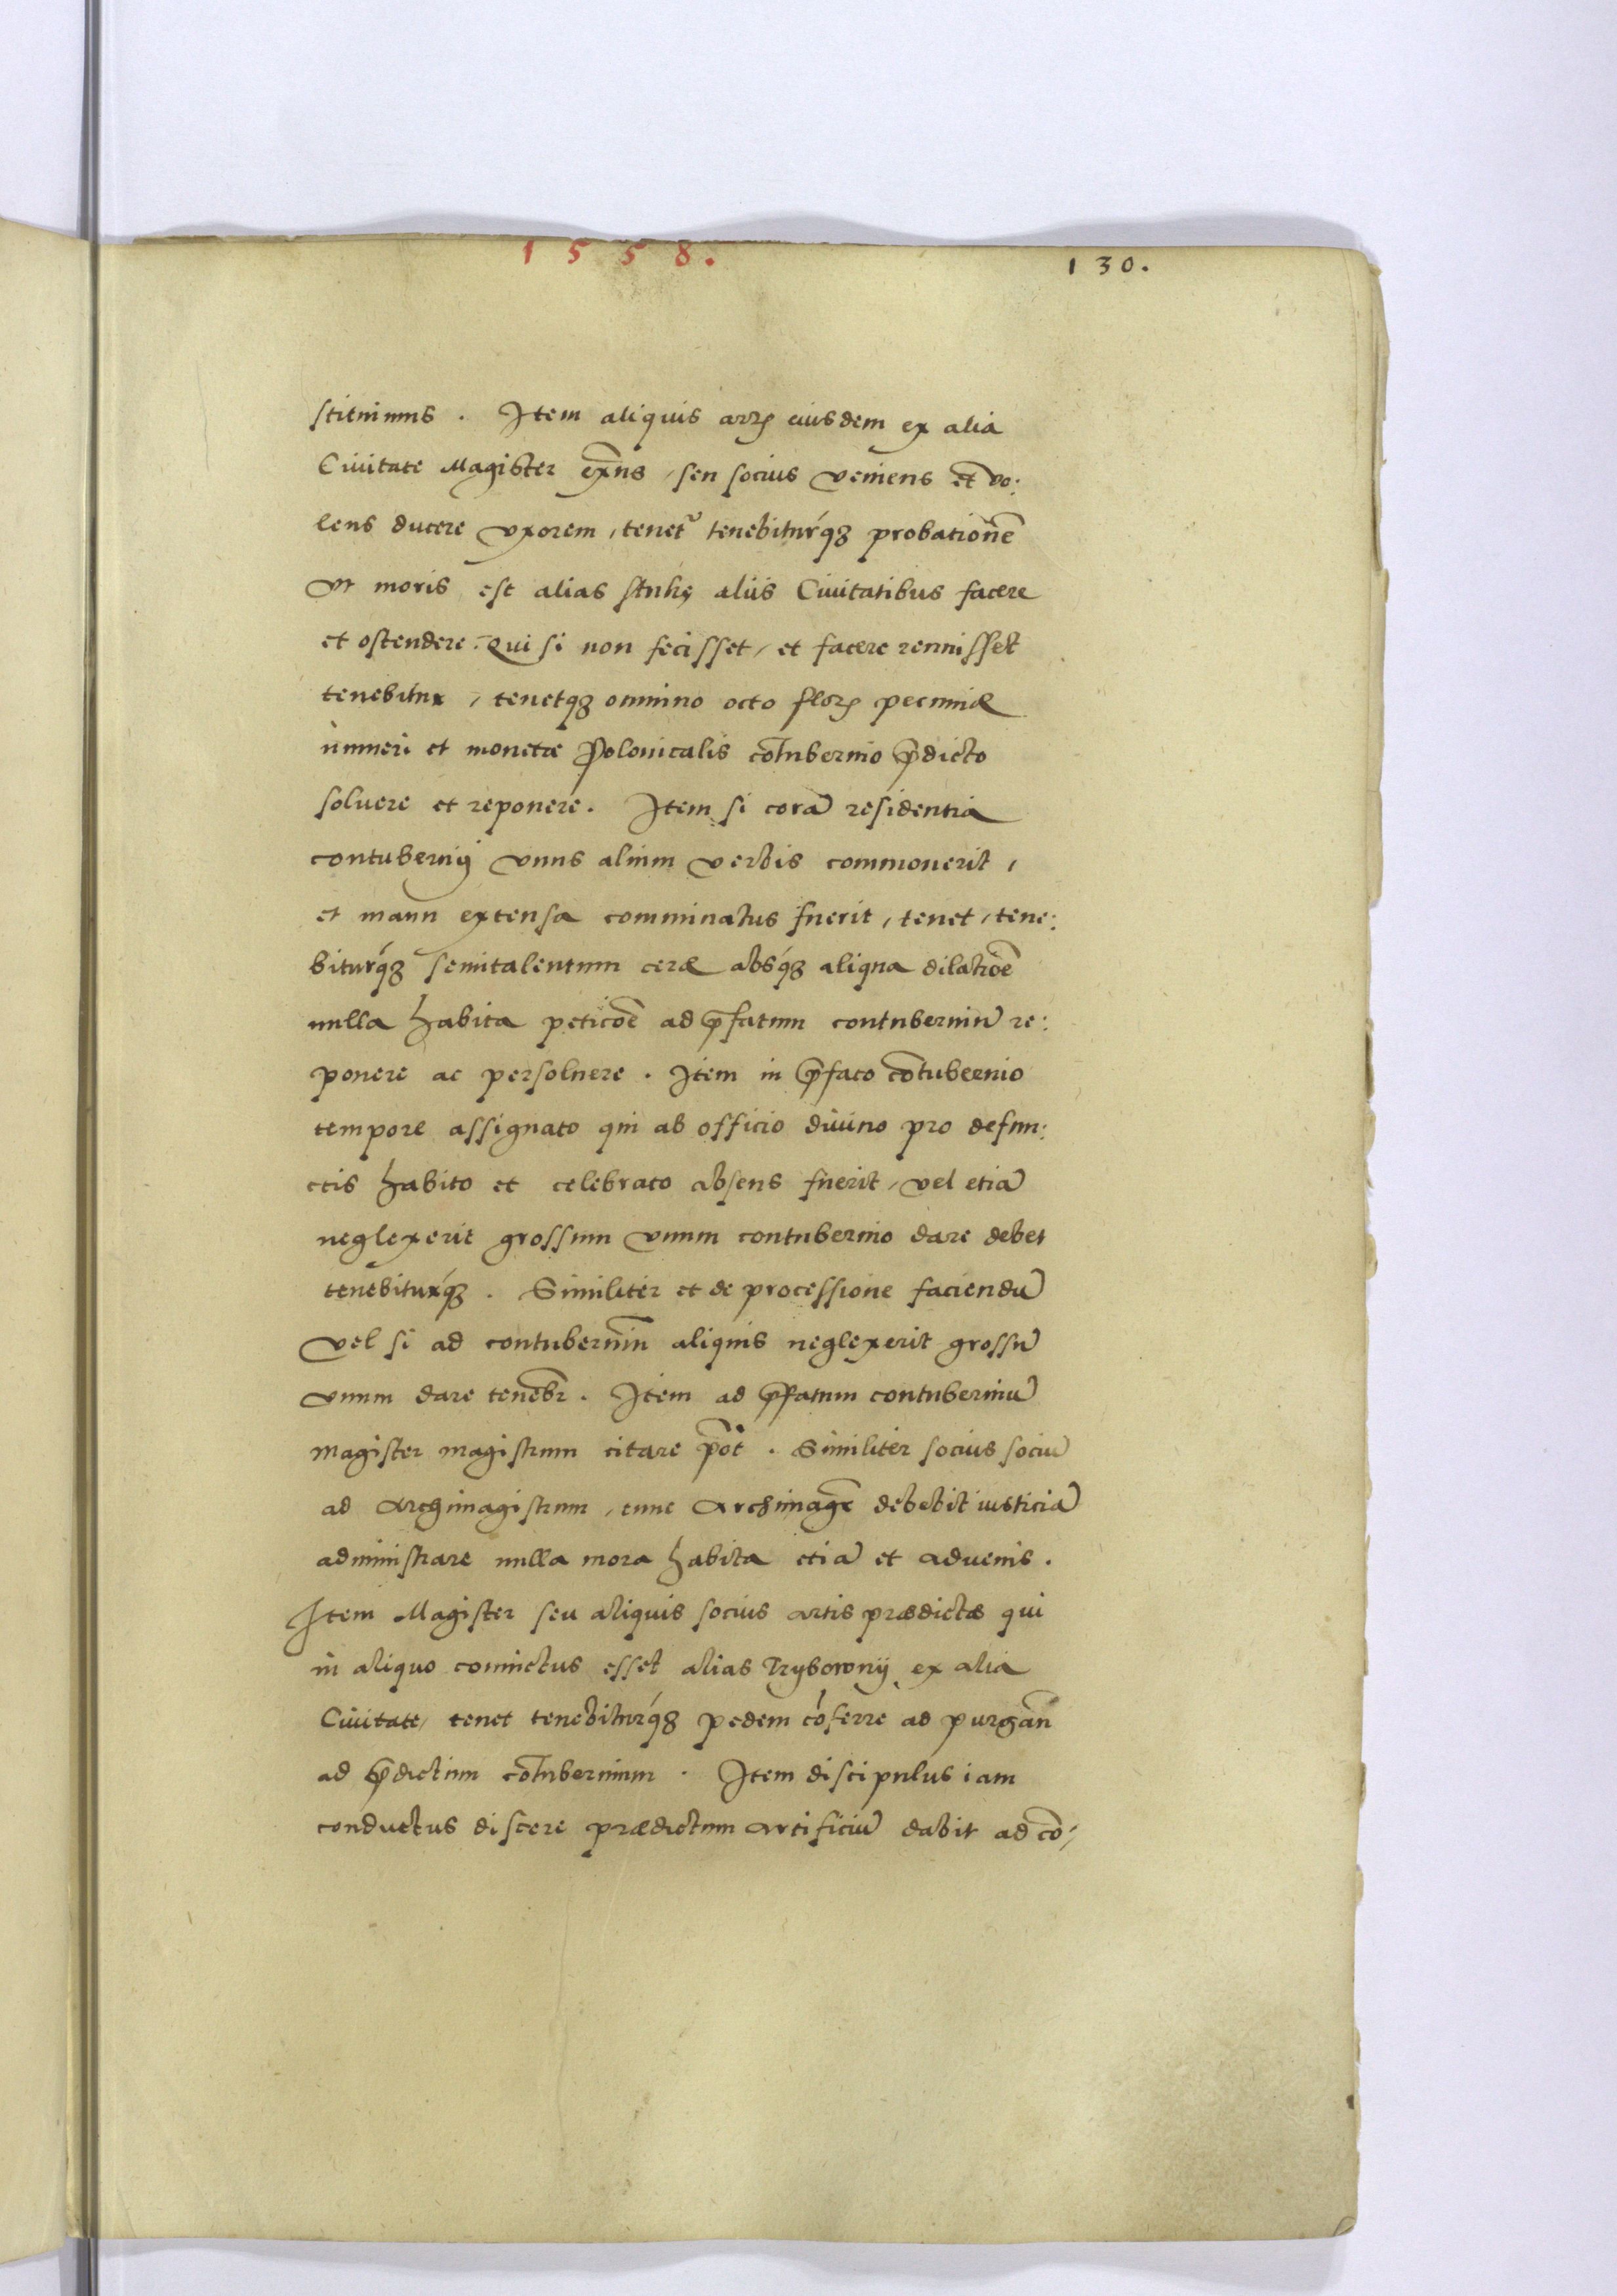 1558.
130.
stituimus. Item aliquis artꝭ eiusdem ex alia
Ciuitate Magister exñs, seu socius veniens et vo:
lens ducere vxorem, tenetᷣ tenebiturq́ꝫ probationẽ
vt moris est alias sztukę alijs Ciuitatibus facere
et ostendere. Qui si non fecisset, et facere renuisset
tenebitur, tenetqꝫ omnino octo florꝭ pecuniæ
numeri et monetæ Polonicalis cõtubernio p̃dicto
soluere et reponere. Item si corã residentia
contubernij vnus alium verbis commouerit,
et manu extensa comminatus fuerit, tenet, tene:
biturq́ꝫ semitalentum ceræ absq́ꝫ aliqua dilatiõe
nulla habita peticõe ad p̃fatum contuberniũ re:
ponere ac persoluere. Item in p̃fato cõtubernio
tempore assignato qui ab officio diuino pro defun:
ctis habito et celebrato absens fuerit, vel etiã
neglexerit grossum vnum contubernio dare debet
tenebiturq́ꝫ. Similiter et de processione faciendũ
vel si ad contuberniũ aliquis neglexerit grossũ
vnum dare tenebr̃. Item ad p̃fatum contuberniũ
magister magistrum citare põt. Similiter socius sociũ
ad Archimagistrum, tunc Archimagr̃ debebit iusticiã
administrare nulla mora habita etiã et aduenis.
Item Magister seu aliquis socius artis prædictæ qui
in aliquo conuictus esset alias Trybowny ex alia
Ciuitate, tenet tenebiturq́ꝫ pedem cõferre ad purgañ
ad p̃dictum cõtubernium. Item discipulus iam
conductus discere prædictum artificiũ dabit ad cõ,